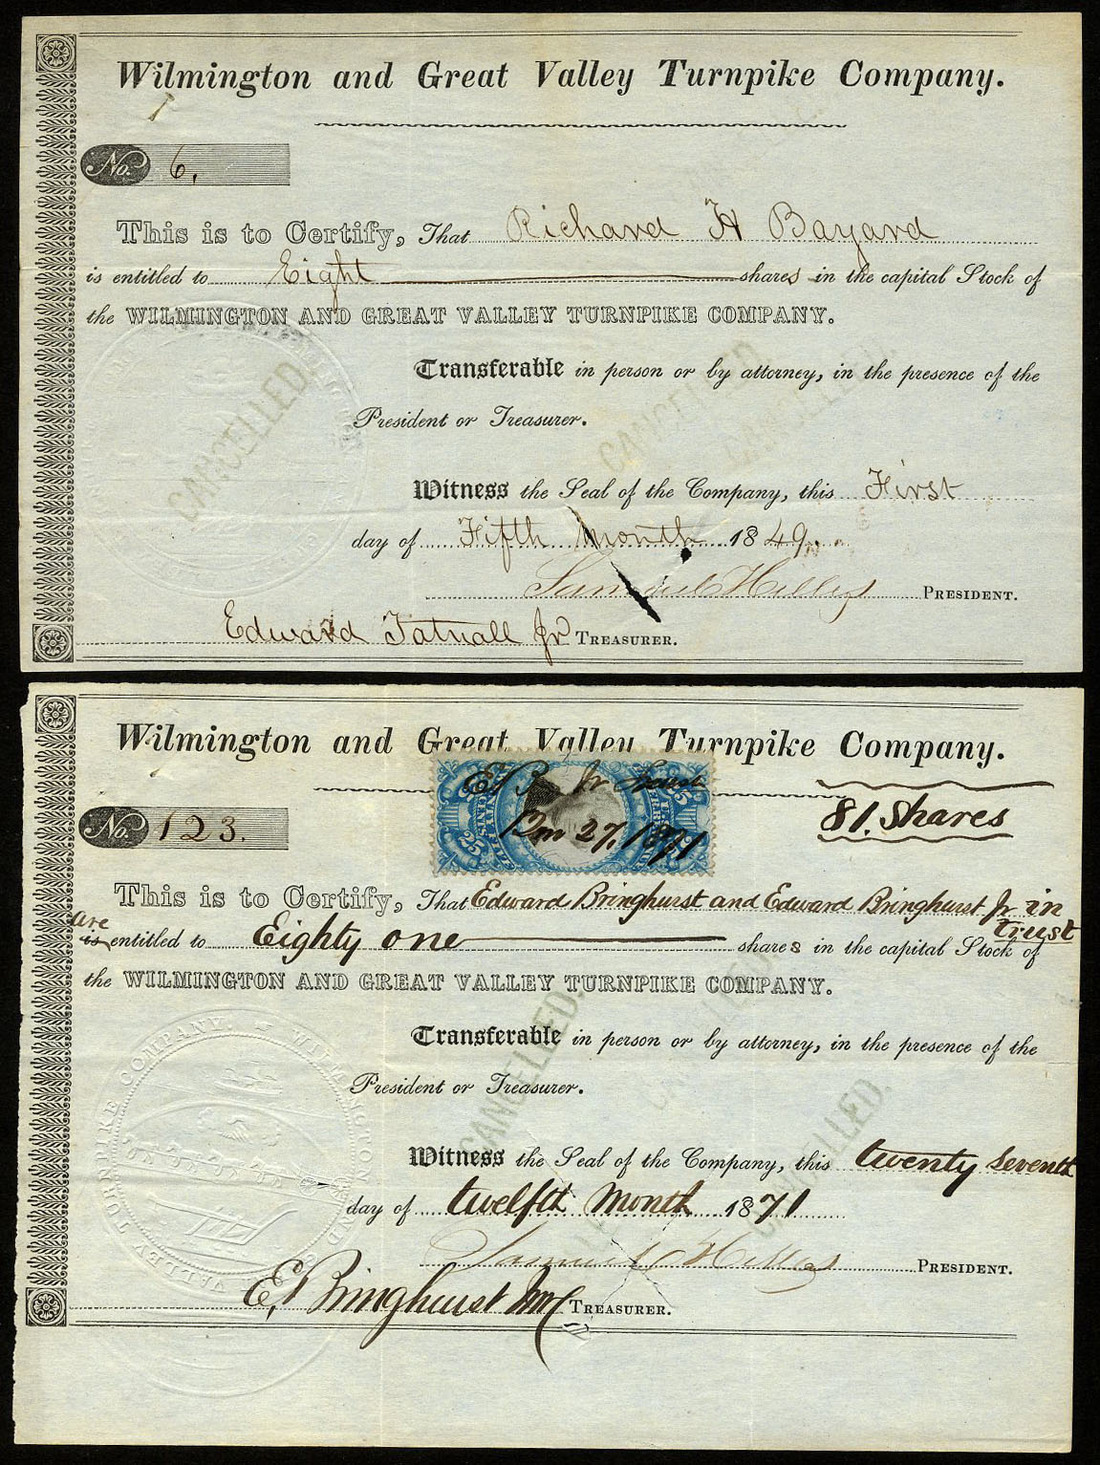 Wilmington and Great Valley Turnpike Company.
No. 6.
This is to Certify, That Richard H Bayard
is entitled to Eight shares in the capital Stock of
the WILMINGTON AND GREAT VALLEY TURNPIKE COMPANY.
CANCELLED.
Transferable in person or by attorney, in the presence of the
CANCELLED.
President or Treasurer.
Witness the Seal of the Company, this First
day of Fifth Month 1849
Samuel Hilles PRESIDENT.
Edward Tatnall Jr TREASURER.
Wilmington and Great Valley Turnpike Company.
E B Jr
12m 27, 1871
25
81. Shares
No. 123.
This is to Certify, That Edward Bringhurst and Edward Bringhurst Jr in
trust
are
is entitled to Eighty one shares in the capital Stock of
the WILMINGTON AND GREAT VALLEY TURNPIKE COMPANY.
Transferable in person or by attorney, in the presence of the
President or Treasurer.
CANCELLED.
CANCELLED.
VALLEY TURNPIKE COMPANY. WILMINGTON AND
Witness the Seal of the Company, this twenty seventh
day of twelfth Month 1871
Samuel Hilles PRESIDENT.
E. Bringhurst Jr TREASURER.